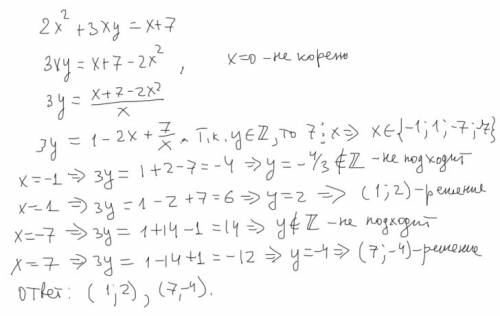 2x² + 3xy = x+7
3xy = x+7-2x², x=0 -не корень
3y = (x+7-2x²)/x
3y = 1-2x+7/x. Т.к. y∈ℤ, то 7⋮x ⇒ x∈{-1;1;-7;7}
x=-1 ⇒ 3y = 1+2-7=-4 ⇒ y=-4/3 ∉ ℤ -не подходит
x=1 ⇒ 3y = 1-2+7=6 ⇒ y=2 ⇒ (1;2)-решение
x=-7 ⇒ 3y = 1+14-1=14 ⇒ y∉ℤ -не подходит
x=7 ⇒ 3y = 1-14+1=-12 ⇒ y=-4 ⇒ (7;-4)-решение
Ответ: (1;2), (7,-4).